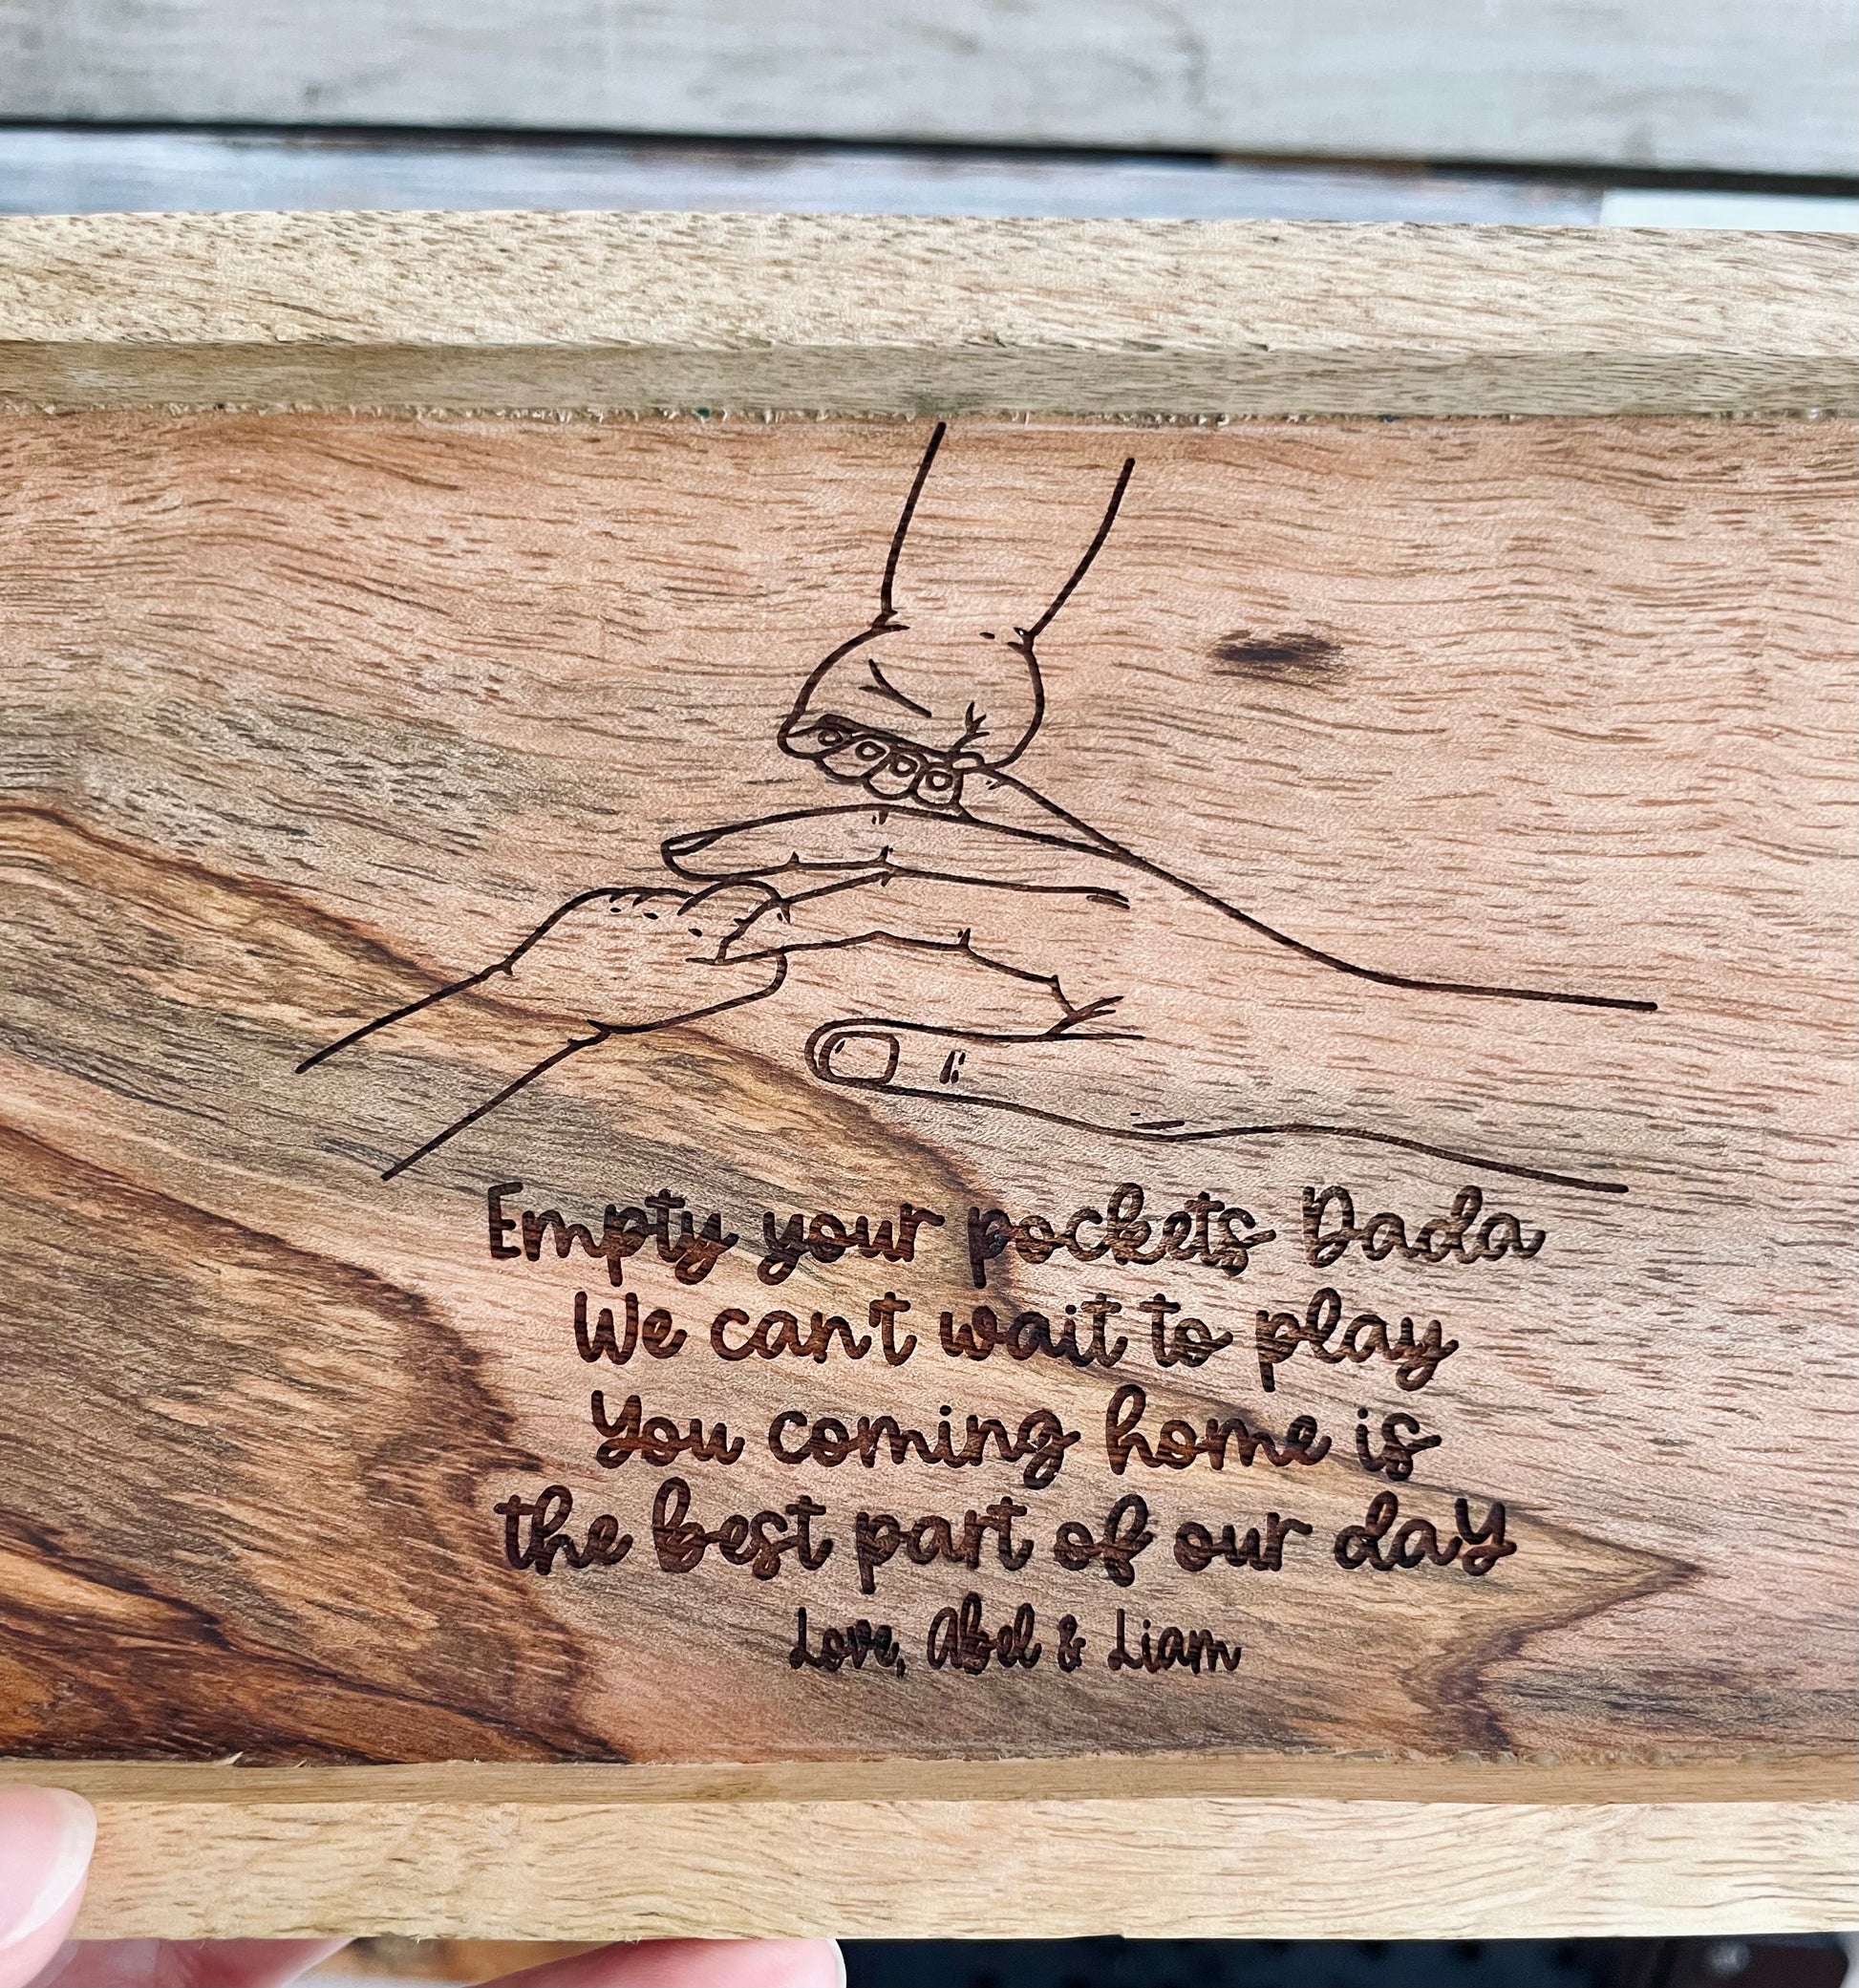 Empty your pockets Dada
We can't wait to play
You coming home is
the best part of our day
Love, Abel & Liam